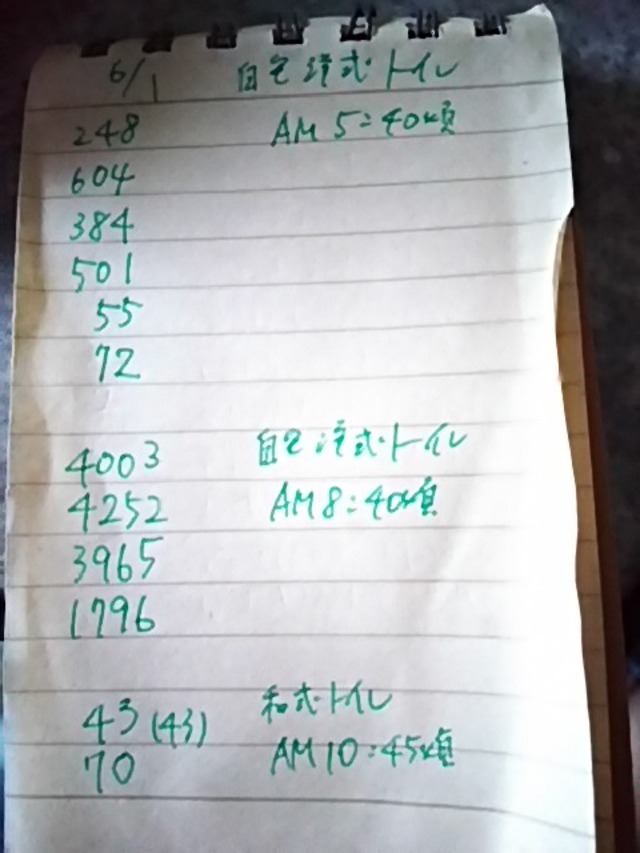 6/1 自宅洋式トイレ
248 AM5:40頃
604
384
501
55
72
4003 自宅洋式トイレ
4252 AM8:40頃
3965
1796
43(43) 和式トイレ
70 AM10:45頃